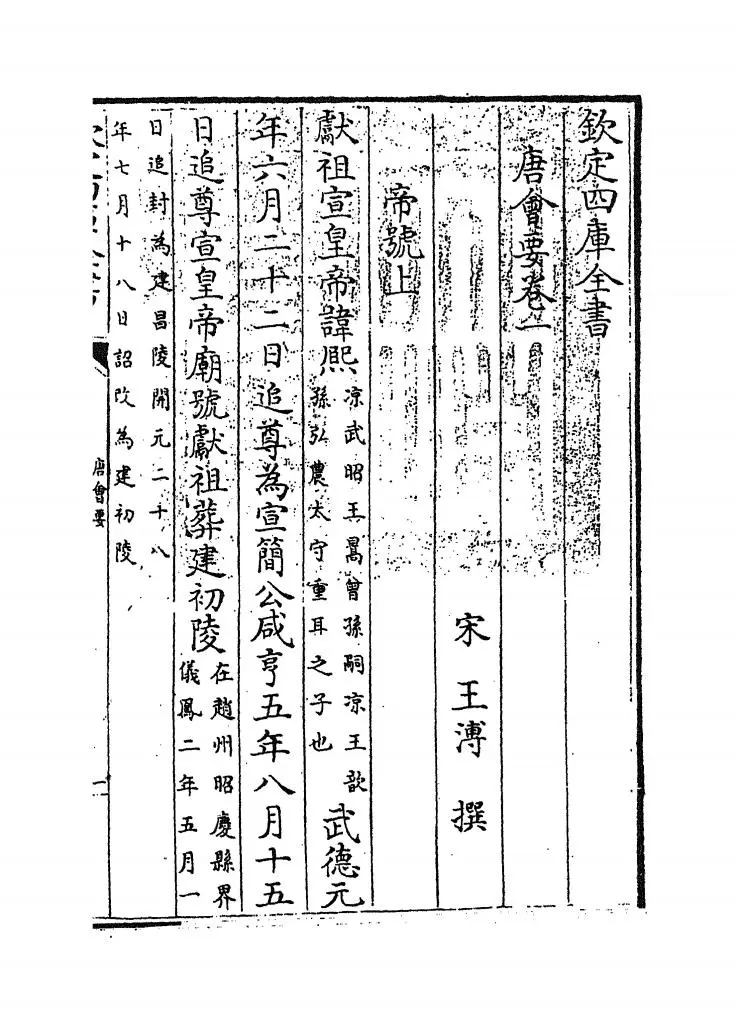 欽定四庫全書
唐會要卷一
宋 王溥 撰
帝號上
獻祖宣皇帝諱熙涼武昭王暠曾孫嗣涼王歆孫弘農太守重耳之子也武德元
年六月二十二日追尊為宣簡公咸亨五年八月十五
日追尊宣皇帝廟號獻祖葬建初陵在趙州昭慶縣界儀鳳二年五月一
日追封為建昌陵開元二十八年七月十八日詔改為建初陵
唐會要
一